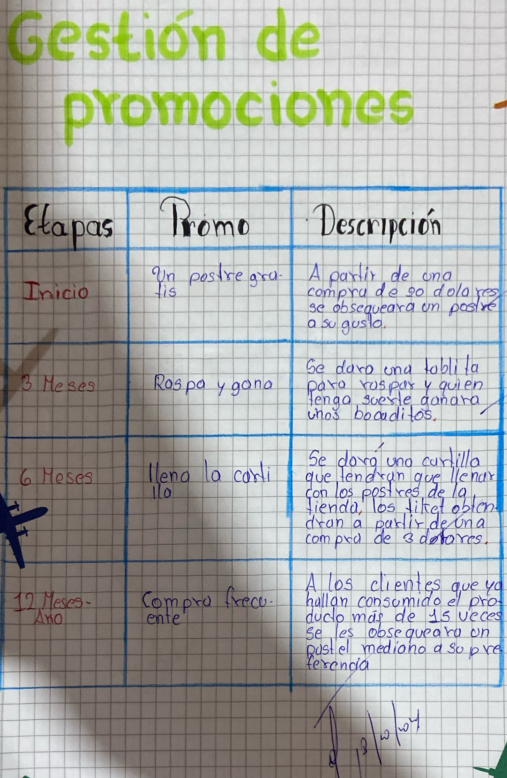 Gestión de
promociones
Etapas
Promo
Descripción
Inicio
Un postre gra-
tis
A partir de una
compra de 20 dolares
se obsequeara un postre
a su gusto.
3 Meses
Raspa y gana
Se dara una tablita
para raspar y quien
tenga suerte danara
unos bocaditos.
6 Meses
llena la carti
lla
Se dará una cartilla
que tendran que llenar
con los postres de la
tienda, los tiket obten-
dran a partir de una
compra de 3 dolores.
12 Meses-
Año
Compra frecu-
ente
A los clientes que ya
hallan consumido el pro-
ducto más de 15 veces
se les obsequeara un
pastel mediano a su pre
ferencia